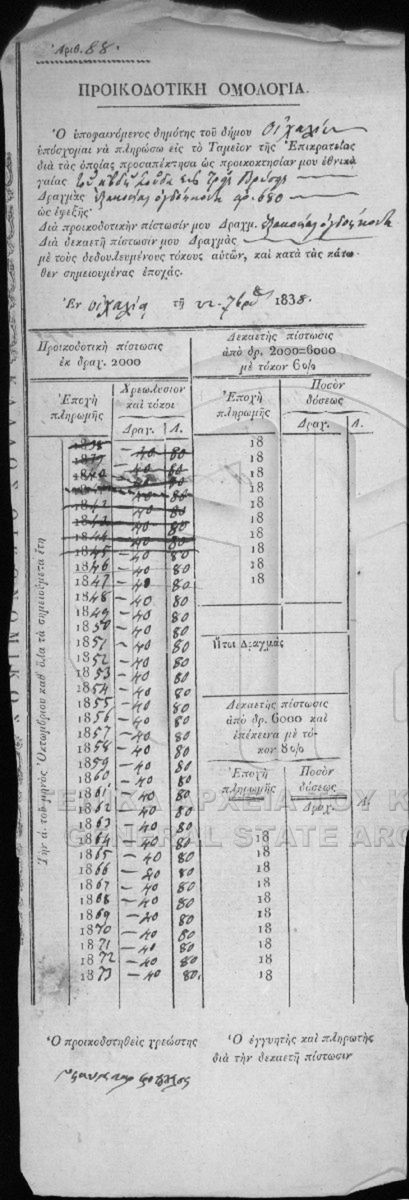 Αριθ. 88.
ΠΡΟΙΚΟΔΟΤΙΚΗ ΟΜΟΛΟΓΙΑ.
Ὁ ὑποφαινόμενος δημότης τοῦ δήμου Οἰχαλίας
ὑπόσχομαι νὰ πληρώσω εἰς τὸ Ταμεῖον τῆς Ἐπικρατείας
διὰ τὰς ὁποίας προσαπέκτησα ὡς προικοκτησίαν μου ἐθνικὰς
γαίας
Δραχμὰς ἑξακοσίας ὀγδοήκοντα ἀρ. 680
ὡς ἐφεξῆς·
Διὰ προικοδοτικὴν πίστωσίν μου Δραχμ. ἑξακοσίας ὀγδοήκοντα
Διὰ δεκαετῆ πίστωσίν μου Δραχμὰς
μὲ τοὺς δεδουλευμένους τόκους αὐτῶν, καὶ κατὰ τὰς κάτω-
θεν σημειουμένας ἐποχάς.
Ἐν Οἰχαλίᾳ τῇ 22 7βρίου 1838.
Προικοδοτικὴ πίστωσις
ἐκ δραχ. 2000
Ἐποχὴ
πληρωμῆς
Χρεωλύσιον
καὶ τόκοι
Δραχ. Λ.
Τὴν ά. τοῦ μηνὸς Ὀκτωβρίου καθ᾽ ὅλα τὰ σημειούμενα ἔτη
1838 40 80
1839 40 80
1840 40 80
1841 40 80
1842 40 80
1843 40 80
1844 40 80
1845 40 80
1846 40 80
1847 40 80
1848 40 80
1849 40 80
1850 40 80
1851 40 80
1852 40 80
1853 40 80
1854 40 80
1855 40 80
1856 40 80
1857 40 80
1858 40 80
1859 40 80
1860 40 80
1861 40 80
1862 40 80
1863 40 80
1864 40 80
1865 40 80
1866 40 80
1867 40 80
1868 40 80
1869 40 80
1870 40 80
1871 40 80
1872 40 80
1873 40 80.
Δεκαετὴς πίστωσις
ἀπὸ δρ. 2000=6000
μὲ τόκον 6 0/0
Ἐποχὴ
πληρωμῆς
Ποσὸν
δόσεως
Δραχ. Λ.
18
18
18
18
18
18
18
18
18
18
Ἤτοι Δραχμάς
Δεκαετὴς πίστωσις
ἀπὸ δρ. 6000 καὶ
ἐπέκεινα μὲ τό-
κον 8 0/0
Ἐποχὴ
πληρωμῆς
Ποσὸν
δόσεως
Δραχ. Λ.
18
18
18
18
18
18
18
18
18
18
Ὁ προικοδοτηθεὶς χρεώστης
Ὁ ἐγγυητὴς καὶ πληρωτὴς
διὰ τὴν δεκαετῆ πίστωσιν
ΓΕΝΙΚΑ ΑΡΧΕΙΑ ΤΟΥ Κ
GENERAL STATE ARC